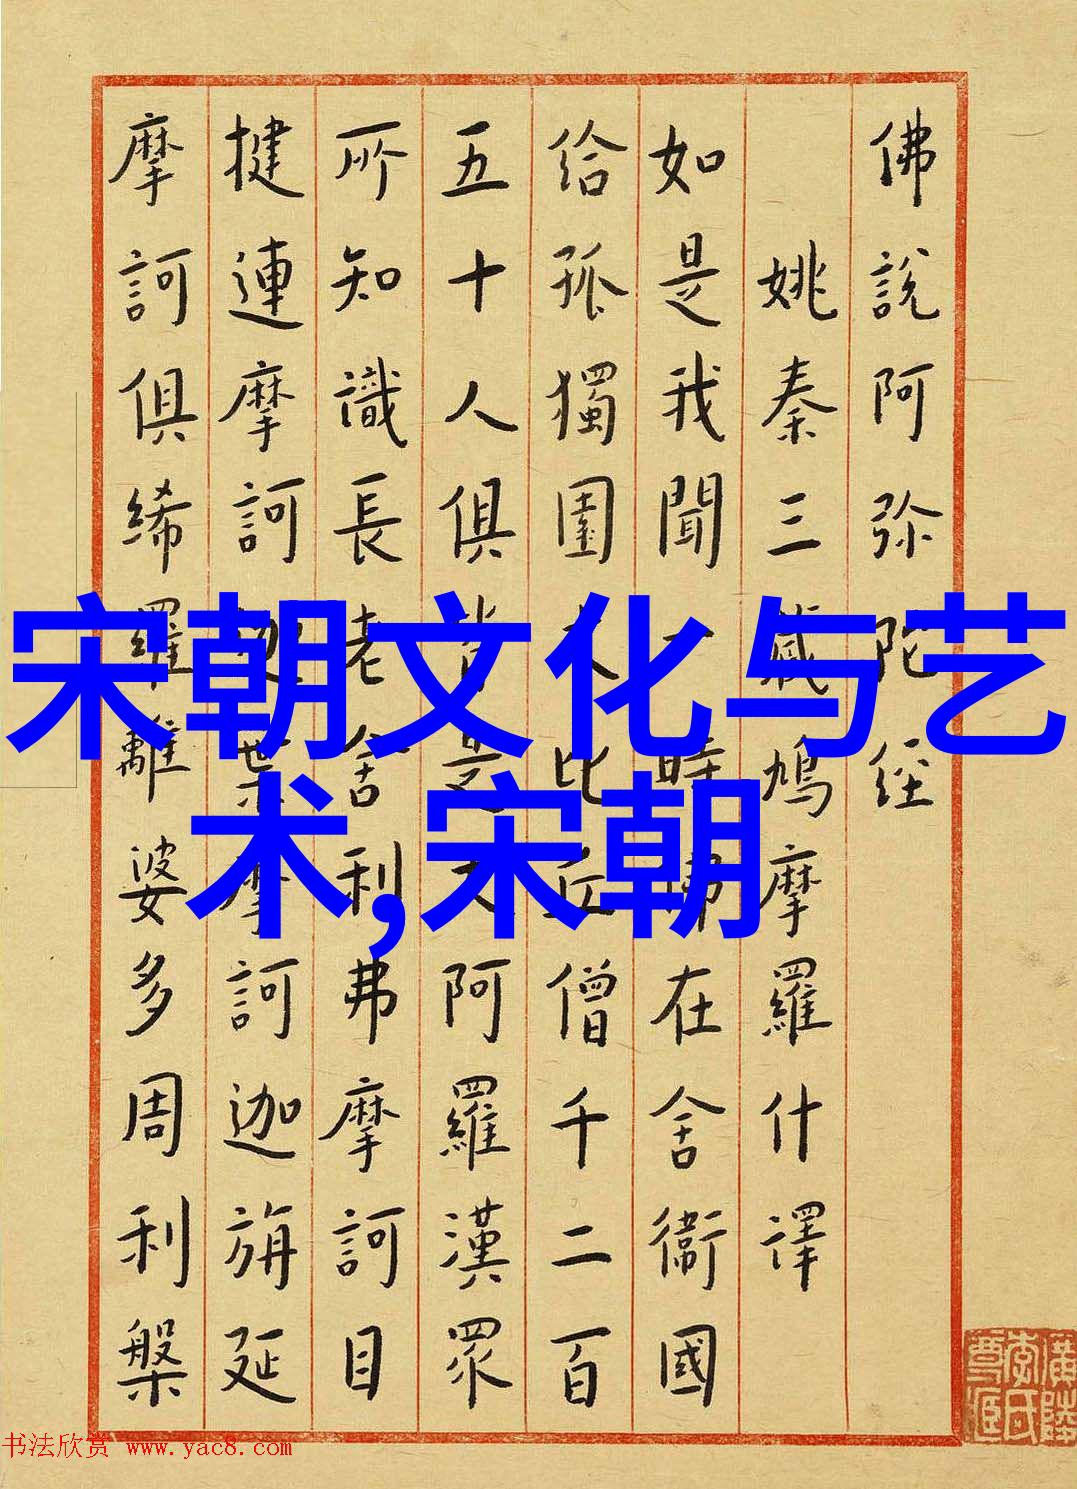 佛說阿弥陀經
姚秦三藏鳩摩羅什譯
如是我聞一時佛在舍衞國
給孤獨園大比丘僧千二百
五十人俱皆是大阿羅漢眾
所知識長老舍利弗摩訶目
揵連摩訶迦葉摩訶迦旃延
摩訶俱絺羅離婆多周利槃
宋朝文化与艺
术,宋朝
书法欣赏 www.yac8.com